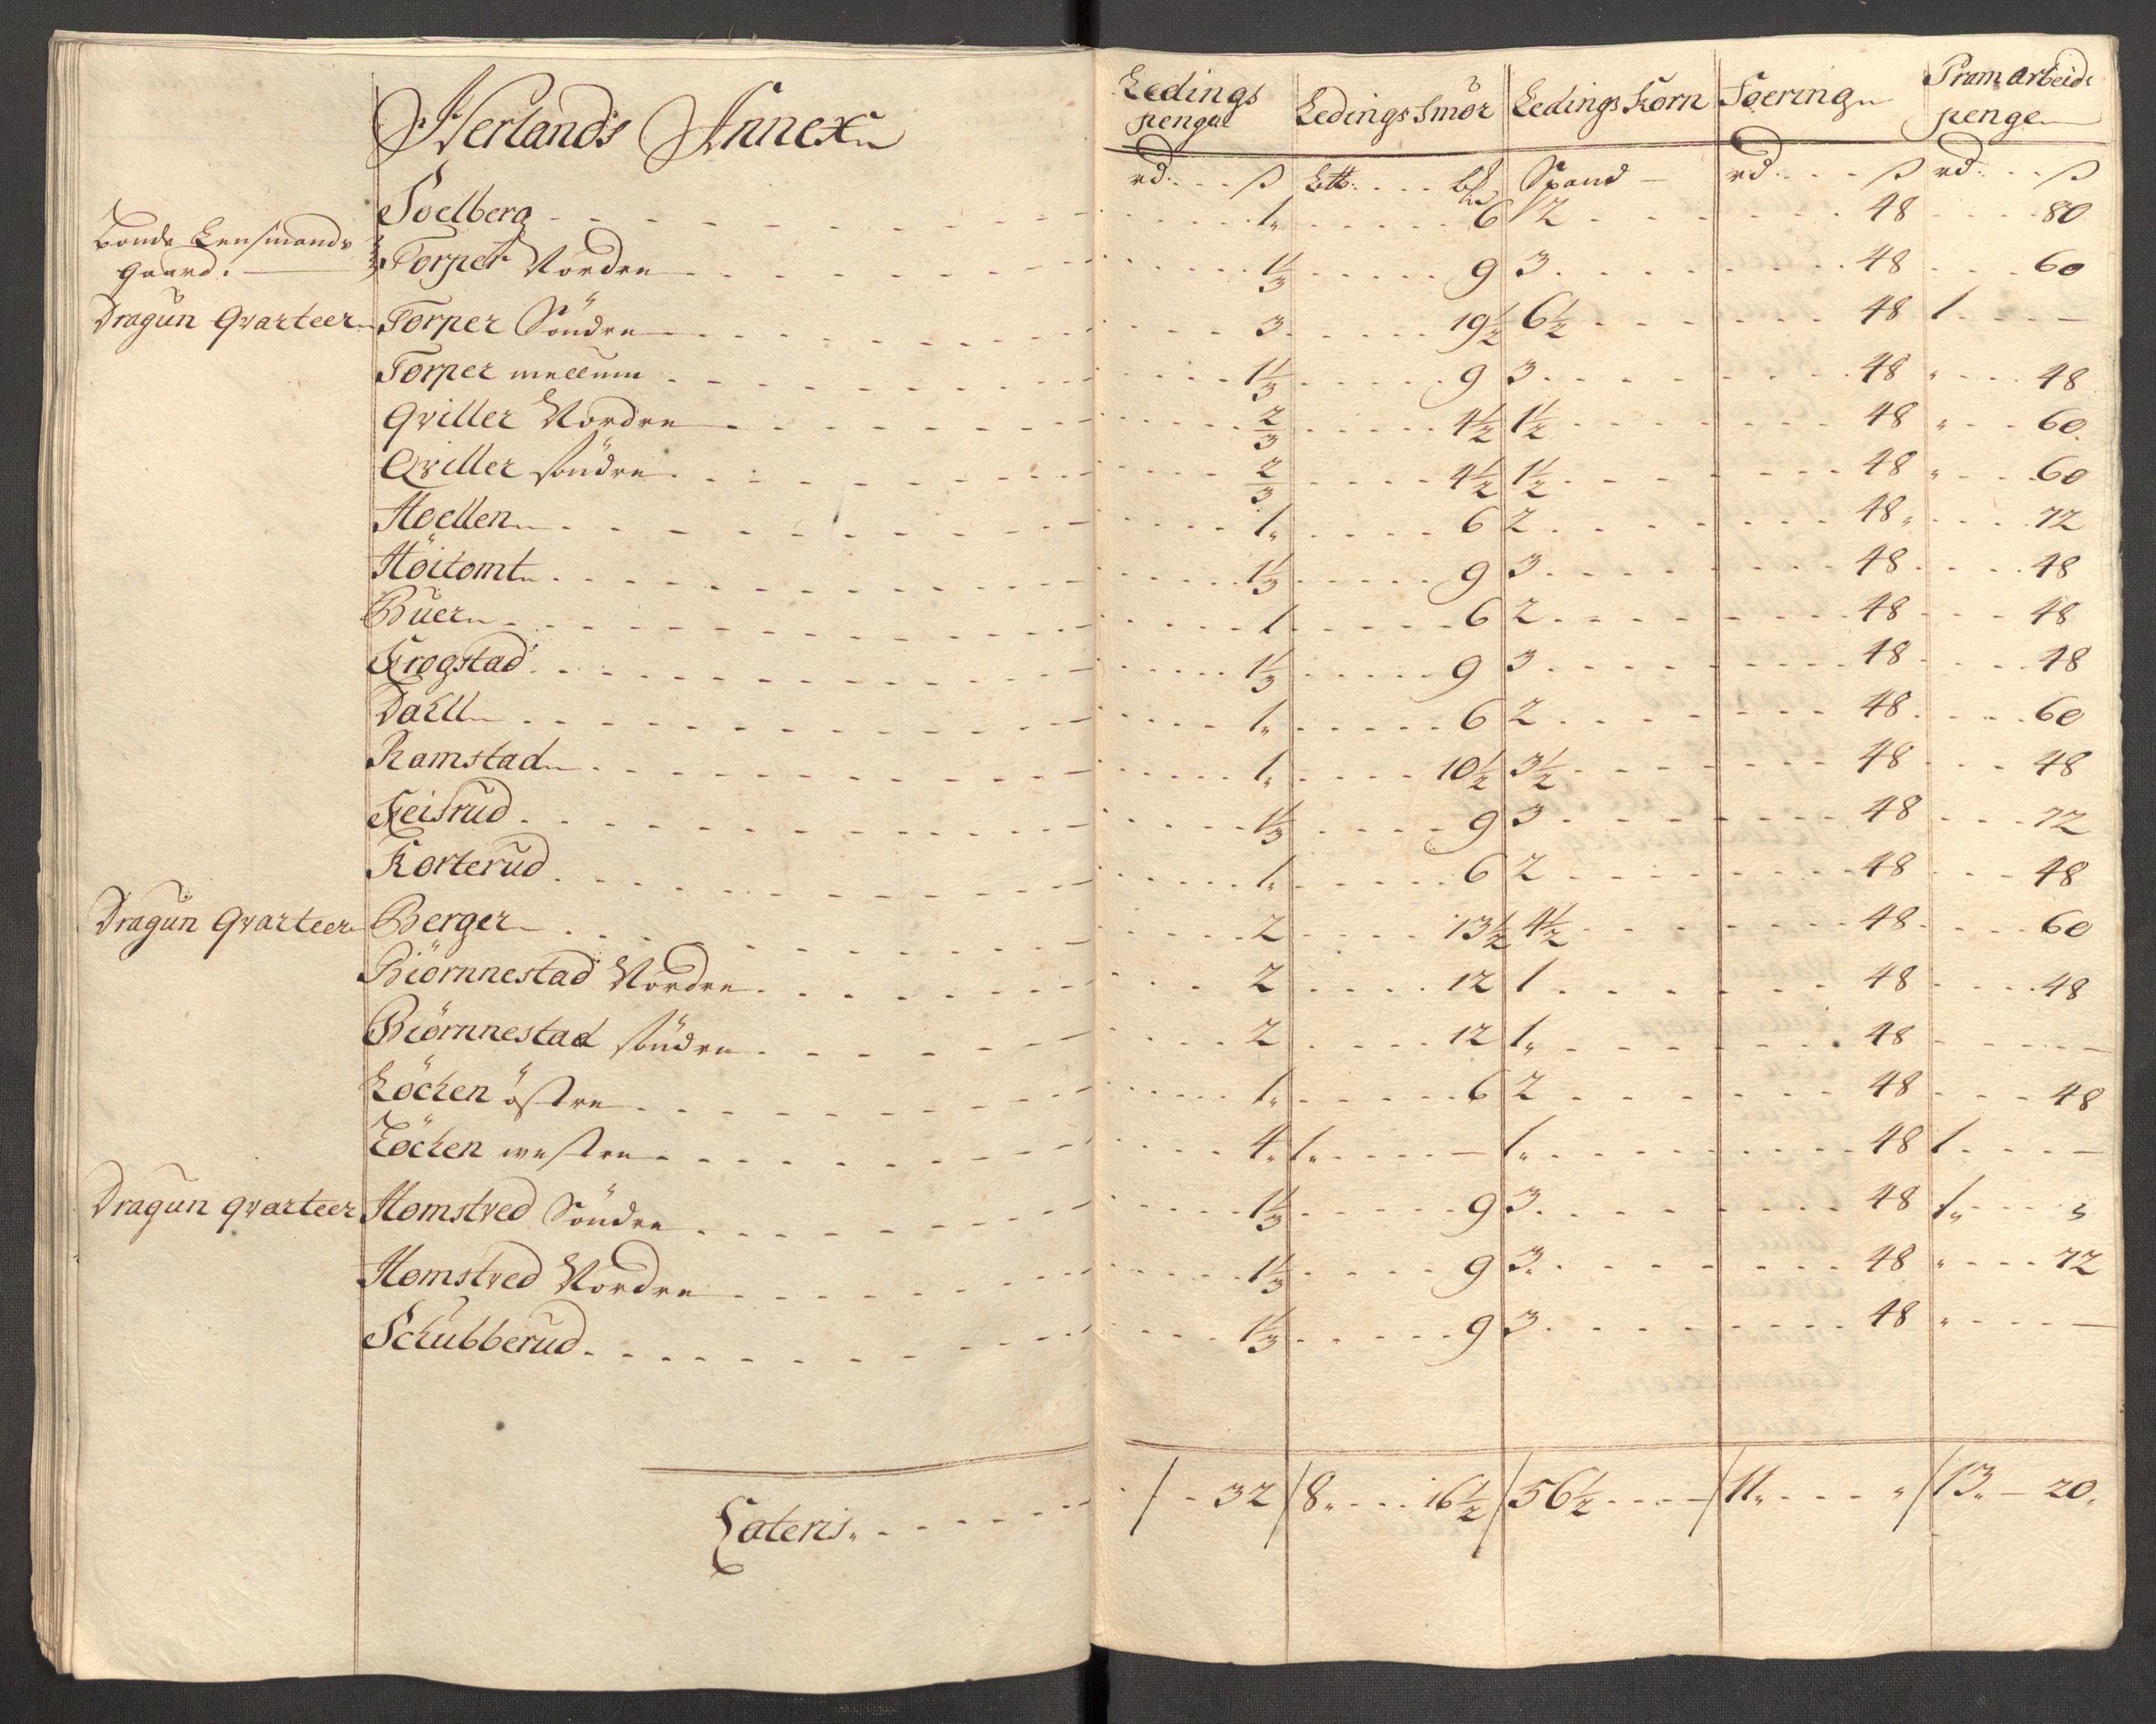 Herlands Annex
Ledings pengal | Ledings Smör | Ledings Korn | Foering | Pram arbeids penge
rd. ß | Lttb. | Spand | rd. ß | rd. ß
Soelberg 1 | 6 | 2 | 48 | 80
Bonde Lensmands gaard. Torper Nordre 1⅓ | 9 | 3 | 48 | 60
Dragun Qvarteer Torper Söndre 3 | 19½ | 6½ | 48 | 1 —
Torper mellum 1⅓ | 9 | 3 | 48 | „ 48
Qviller Nordre ⅔ | 4½ | 1½ | 48 | „ 60
Qviller söndre ⅔ | 4½ | 1½ | 48 | „ 60
Hoellen 1„ | 6 | 2 | 48 | „ 72
Höitomt 1⅓ | 9 | 3 | 48 | 48
Buer 1 | 6 | 2 | 48 | 48
Krogstad 1⅓ | 9 | 3 | 48 | 48
Dahll 1„ | 6 | 2 | 48 | 60
Ramstad 1„ | 10½ | 3½ | 48 | 48
Keisrud 1⅓ | 9 | 3 | 48 | 72
Korterud 1„ | 6 | 2 | 48 | 48
Dragun Qvarteer Berger 2 | 13½ | 4½ | 48 | 60
Biörnnestad Nordre 2 | 12 | 1 | 48 | 48
Biörnnestad söndre 2 | 12 | 1„ | 48 | —
Löchen östre 1„ | 6 | 2 | 48 | 48
Löchen westre 4„ | 1„ — | 1„ | 48 | 1 —
Dragun qvarteer Homstved Söndre 1⅓ | 9 | 3 | 48 | 1„
Homstved Nordre 1⅓ | 9 | 3 | 48 | „ 72
Schubberud 1⅓ | 9 | 3 | 48 | „ —
Lateris 32 | 8„ 16½ | 56½ — | 11„ „ | 13„ — 20